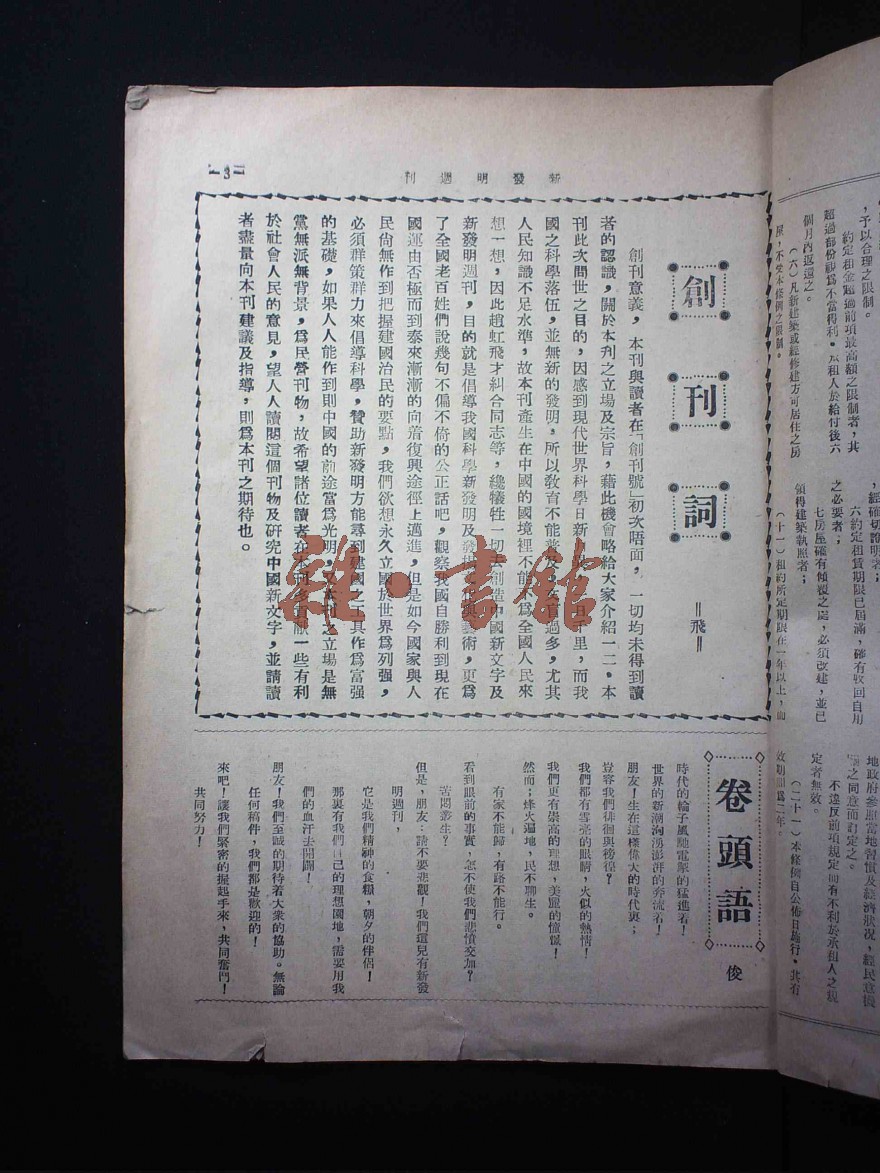 新發明週刊
—3—
創刊詞
＝飛＝
創刊意義，本刊與讀者在「創刊號」初次唔面，一切均未得到讀
者的認識，關於本刋之立場及宗旨，藉此機會略給大家介紹一二。本
刊此次問世之目的，因感到現代世界科學日新月 一日千里，而我
國之科學落伍，並無新的發明，所以敎育不能普及，文盲過多，尤其
人民知識不足水準，故本刊產生在中國的國境裡不能不爲全國人民來
想一想，因此趙虹飛才糾合同志等，纔犧牲一切去創造中國新文字及
新發明週刊，目的就是倡導我國科學新發明及發 文化與藝術，更爲
了全國老百姓們說幾句不偏不倚的公正話吧，觀察我國自勝利到現在
國運由否極而到泰來漸漸的向着復興途徑上邁進，但是如今國家與人
民尙無作到把握建國治民的要點，我們欲想永久立國於世界爲列强，
必須群策群力來倡導科學，贊助新發明方能尋到建國之工具作爲富强
的基礎，如果人人能作到則中國的前途當爲光明，又本刊之立場是無
黨無派無背景，爲民營刊物，故希望諸位讀者在本刊多貢献一些有利
於社會人民的意見，望人人讀閱這個刊物及研究中國新文字，並請讀
者盡量向本刊建議及指導，則爲本刊之期待也。
卷頭語
俊
時代的輪子風馳電掣的猛進着！
世界的新潮洶湧澎湃的奔流着！
朋友！生在這樣偉大的時代裏；
豈容我們徘徊與徬徨？
我們都有雪亮的眼睛，火似的熱情！
我們更有崇高的理想，美麗的憧憬！
然而；烽火遍地，民不聊生。
有家不能歸，有路不能行。
看到眼前的事實，怎不使我們悲憤交加？
苦悶叢生？
但是，朋友：請不要悲觀！我們這兒有新發
明週刊，
它是我們精神的食糧，朝夕的伴侶！
那裏有我們自己的理想園地，需要用我
們的血汗去開闢！
朋友！我們至誠的期待着大衆的協助。無論
任何稿件，我們都是歡迎的！
來吧！讓我們緊密的握起手來，共同奮鬥！
共同努力！
，予以合理之限制。
約定租金超過前項最高額之限制者，其
超過部份視爲不當得利。承租人於給付後六
個月內返還之。
（六）凡新建築或經修建方可居住之房
屋，不受本條例之限制。
，經確切證明者；
六約定租賃期限已屆滿，確有收回自用
之必要者；
七房屋確有傾覆之虞，必須改建，並已
領得建築執照者；
（十一）租約所定期限在一年以上，而
地政府參照當地習慣及經濟狀況，經民意機
關之同意而訂定之。
不違反前項規定而有不利於承租人之規
定者無效。
（二十一）本條例自公佈日施行。其有
效期間爲二年。
雜·書館